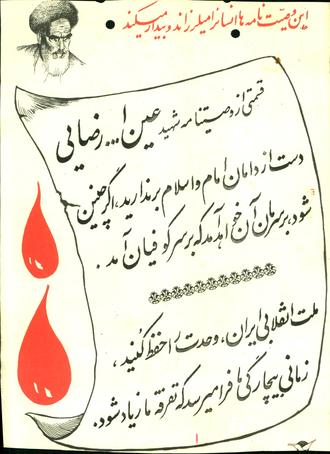 این وصیت نامه ها انسان را میلرزاند و بیدار میکند
قسمتی از وصیتنامه شهید عین ا... رضایی
دست از دامان امام و اسلام برندارید، اگر چنین
شود، برسرمان آن خواهد آمد که بر سر کوفیان آمد.
ملت انقلابی ایران، وحدت را حفظ کنید،
زمانی بیچارگی ها فرا میرسد که تفرقه ما زیاد شود.